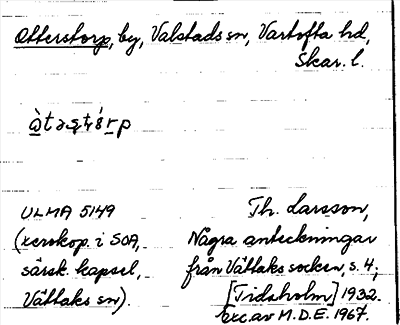 Otterstorp, by, Valstads sn, Vartofta hd,
Skar. l.
ə̀təʂtȯ́rp
ULMA 5149
(xerokop. i SOA,
särsk. kapsel,
Vättaks sn).
Th. Larsson,
Några anteckningar
från Vättaks socken, s. 4,
[Tidaholm] 1932.
Exc. av M.D.E. 1967.